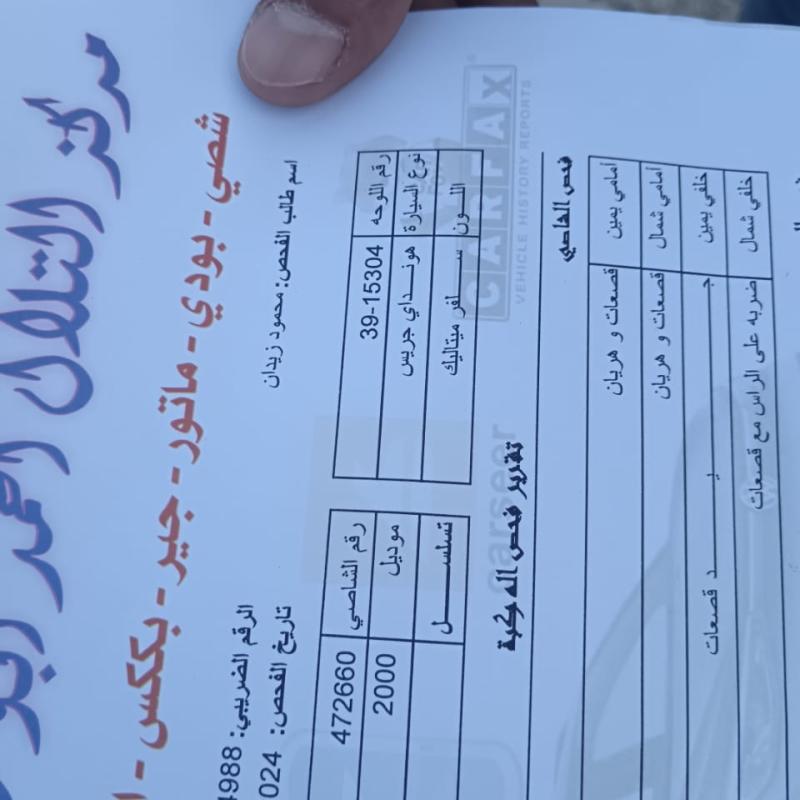 مركز التلال احمد ابو
شصي - بودي - ماتور - جير - بكس -
الرقم الضريبي: 4988
اسم طالب الفحص: محمود زيدان
تاريخ الفحص: 024
رقم اللوحه 39-15304 رقم الشاصي 472660
نوع السيارة هونداي جريس موديل 2000
اللون سافر ميتاليك تسلسل
CARFAX
VEHICLE HISTORY REPORTS
carseer
تقرير فحص المركبة
فحص الشاصي
أمامي يمين قصعات و هريان
أمامي شمال قصعات و هريان
خلفي يمين جيد قصعات
خلفي شمال ضربه على الراس مع قصعات